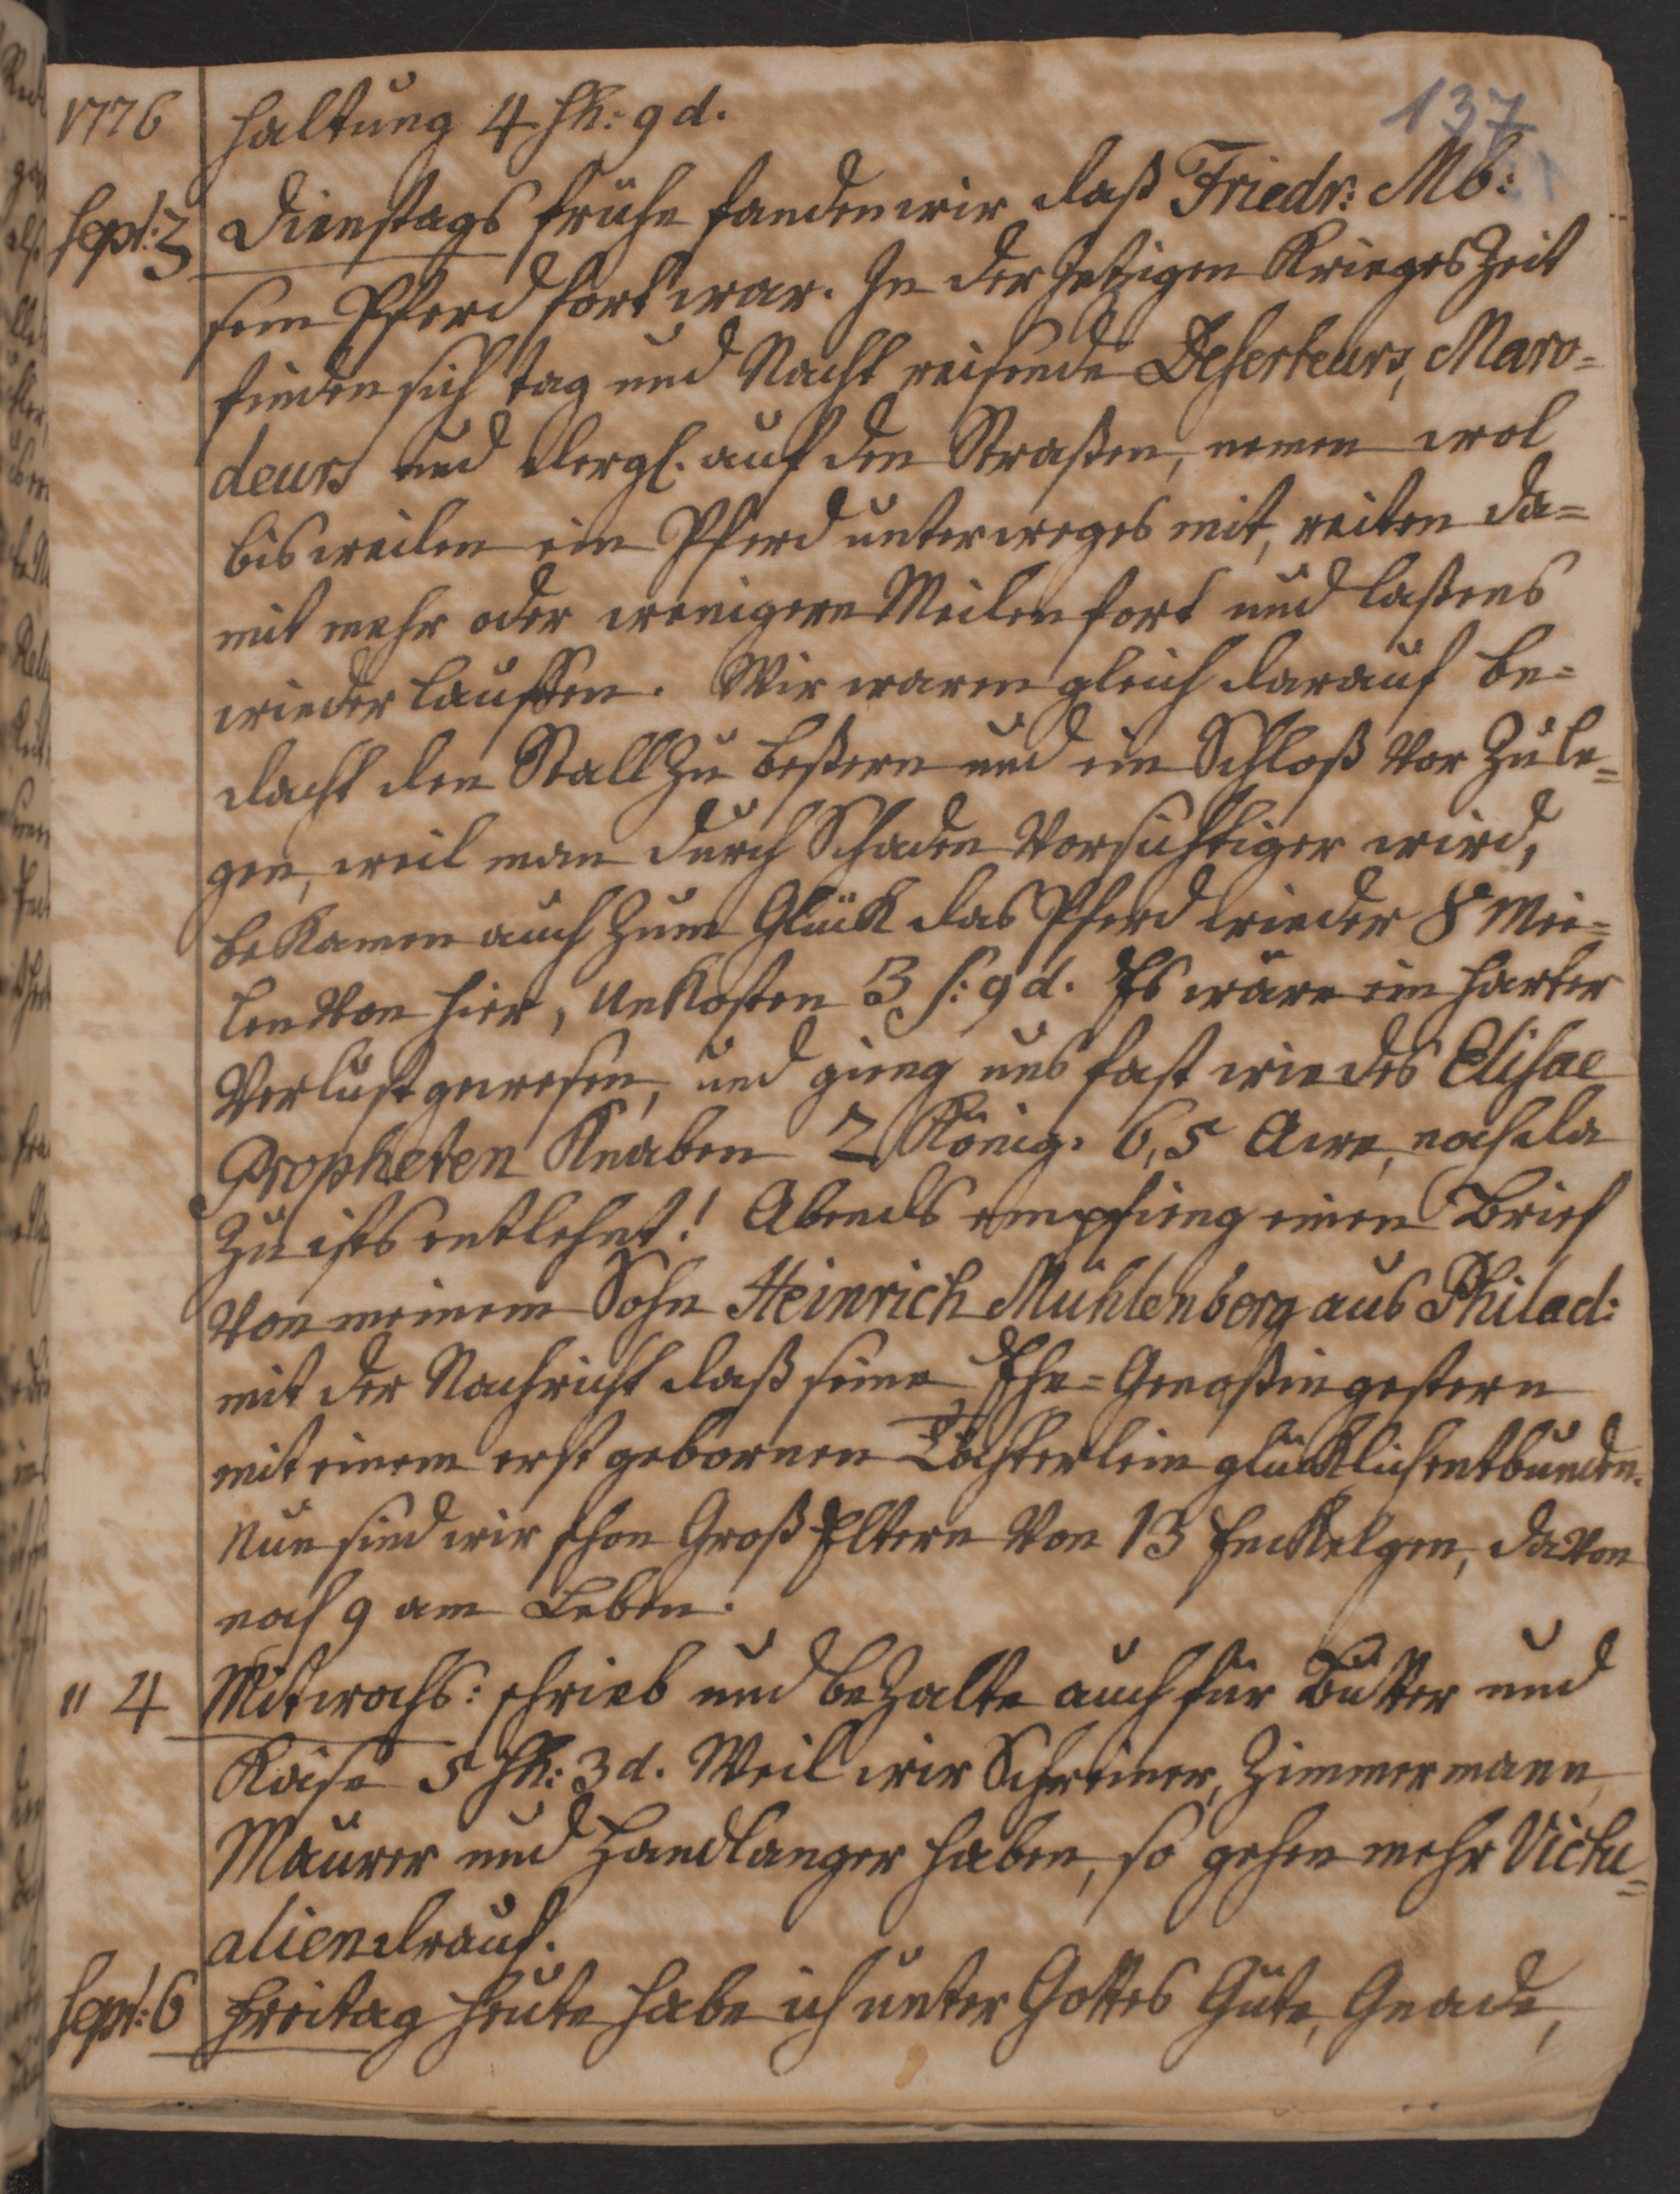 137
1776 haltung 4 sh: 9 d.
Sept: 3 Dienstags frühe fanden wir daß Friedr: Mb:
sein Pferd fort war. In der jetzigen Krieges Zeit
finden sich tag und Nacht reisende Deserteurs, Maro=
deurs und dergl. auf den Straßen, nemen wol
bisweilen ein Pferd unterweges mit, reiten da=
mit mehr oder wenigern Meilen fort und laßens
wieder lauffen. Wir waren gleich darauf be=
dacht den Stall zu beßern und ein Schloß vor zu le=
gen, weil man durch Schaden vorsichtiger wird,
bekamen auch zum Glück das Pferd wieder 8 Mei=
len von hier, Unkosten 3 s: 9 d. Es wäre ein harter
Verlust gewesen, und gieng uns fast wie des Elisae
Propheten Knaben 2 König. 6,5 Awe, noch da
zu ists entlehnt! Abends empfieng einen Brief
von meinem Sohn Heinrich Mühlenberg aus Philad:
mit der Nachricht daß seine Ehe=Genoßin gestern
mit einem erst gebornen Töchterlein glücklich entbunden.
Nun sind wir schon Groß Eltern von 13 Enckelgen, davon
noch 9 am Leben.
" 4 Mitwochs: schrieb und bezalte auch für Butter und
Käse 5 sh: 3 d. Weil wir Schreiner, Zimmermann,
Maurer und Handlanger haben, so gehen mehr Victu=
alien drauf.
Sept: 6 Freitag heute habe ich unter Gottes Güte, Gnade,